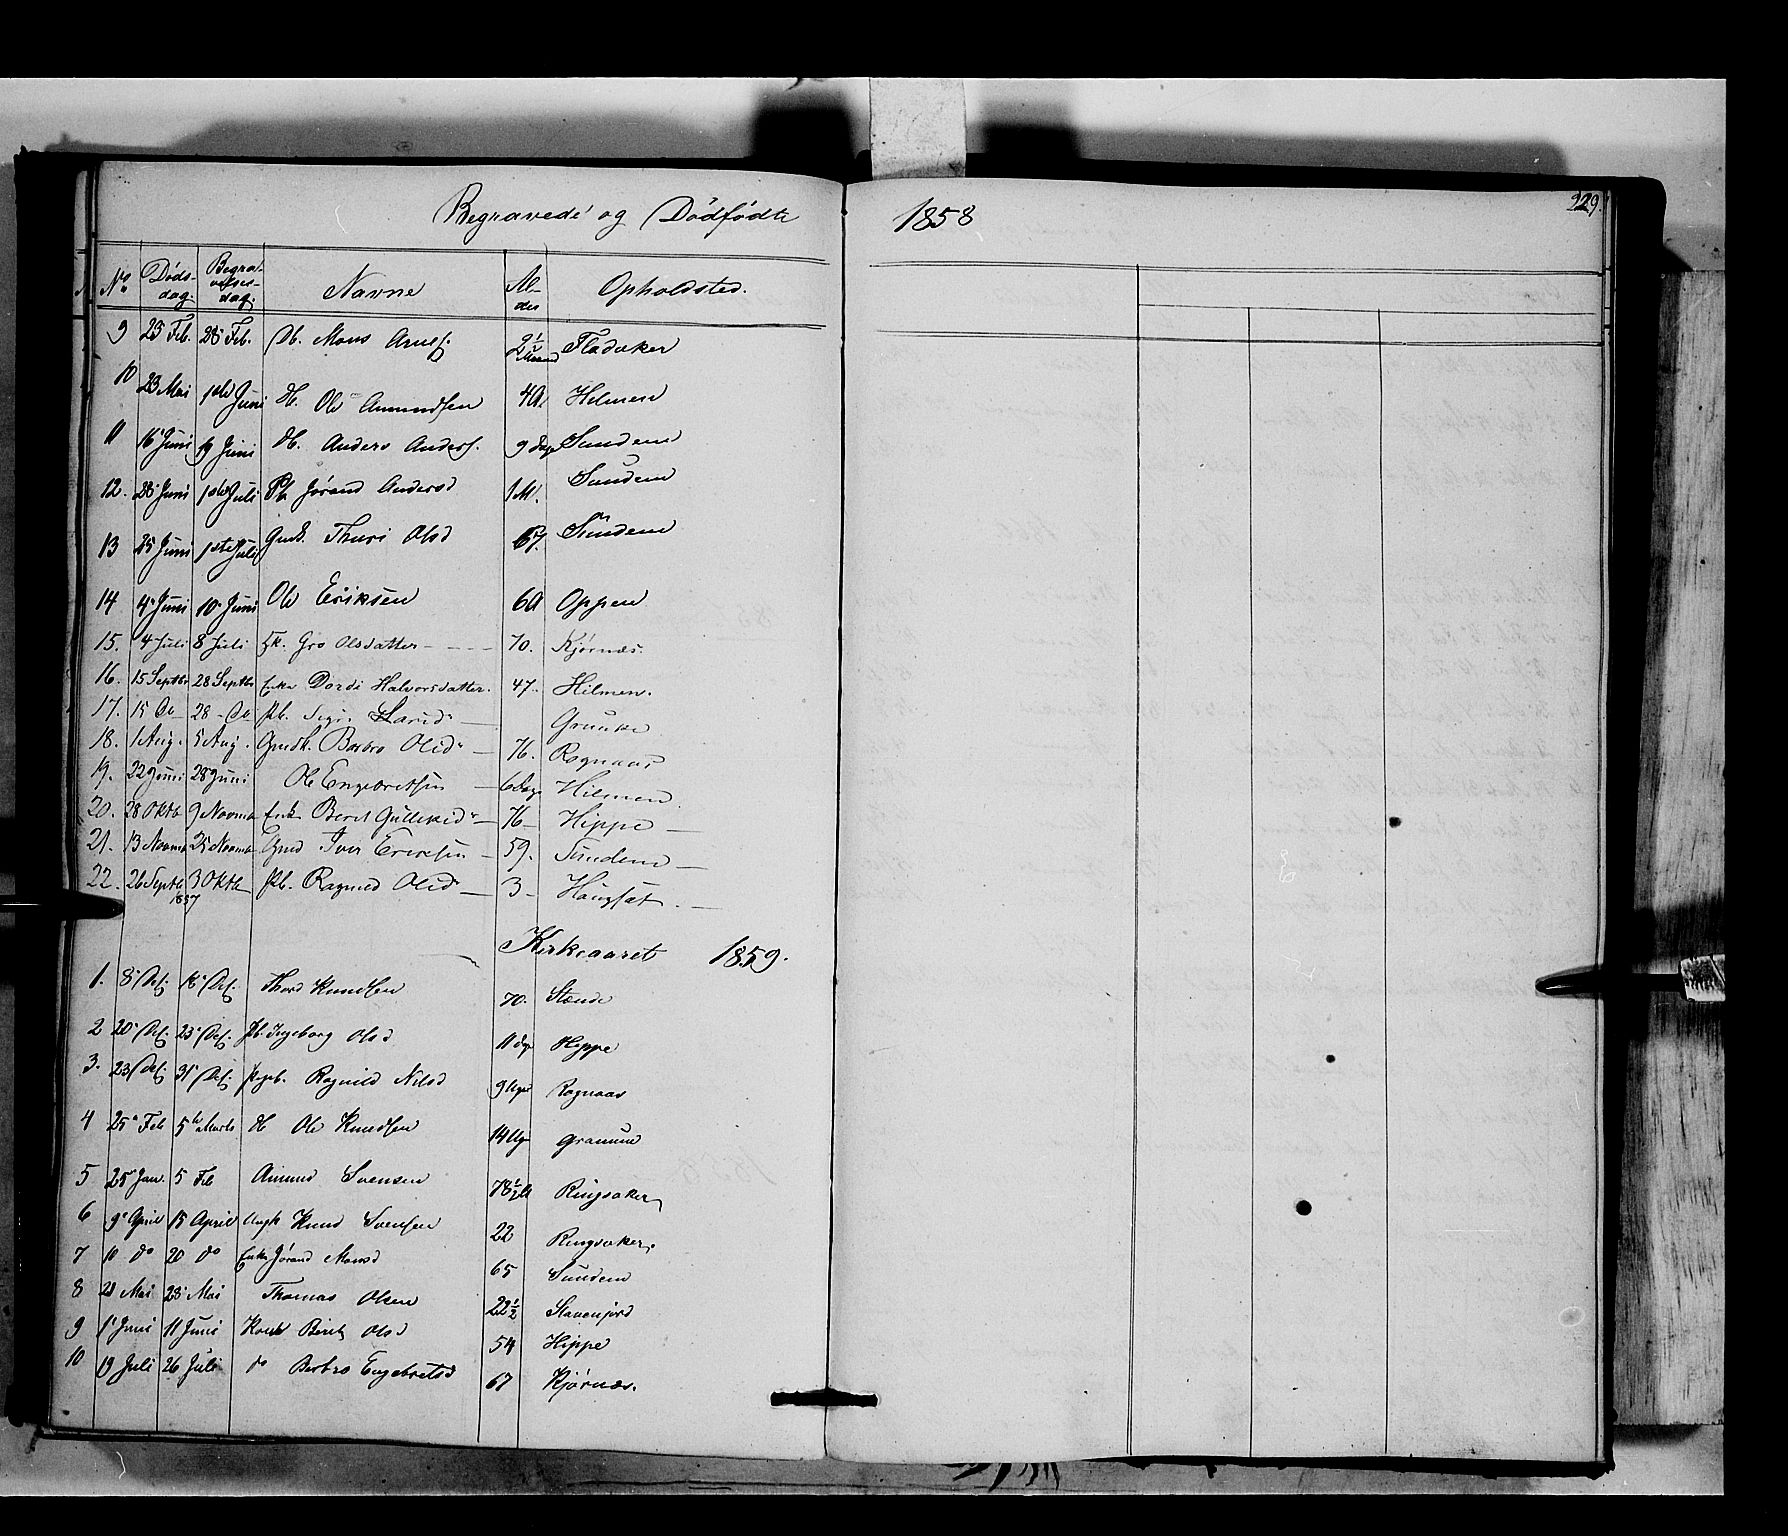 Begravede og Dødfødte 1858
329.
No Døds-dag. Begravelses-dag. Navne Alder Opholdsted.
9 23 Feb. 28 Feb. Db. Mons Arnes. 2½ Fladaker
10 23 Mai 1ste Juni Ole Amundsen 4 A. Hilmen
11 16 Juni 19 Juni Anders Anders. 9 Dage Sundem
12. 28 Juni 1ste Juli Pb. Jørand Andersd 1 M. Sundem
13 25 Juni 1ste Juli Gmdk. Thuri Olsd 67. Sundem
14 4 Juni 10 Juni Ole Eriksen 6 A Oppen
15. 4 Juli 8 Juli Ek. Gro Olsdatter 70. Kjørnæs.
16. 15 Septbr 28 Septbr Enke Dordi Halvorsdatter. 47. Hilmen.
17. 15 Do 28 Do Pb.
18. 1 Aug. 5 Aug. Gmdk. Barbro Olsd 76. Rognaas
19. 22 Juni 28 Juni Ole Engebretsen 6 Dage Hilmen.
20. 28 Oktb 9 Novmb Enk Berit Gulliksd 76 Hippe
21. 13 Novmb 25 Novmb Gmd Iver Ericksen 59. Sundem
22. 26 Septb 1857 3 Oktb Pb. Ragnild Olsd 3 Haugsæt.
Kirkeaaret 1859.
1. 8 Dec. 18 Dec. Thord Knudsen 70. Stænde
2 20 Dec. 23 Dec. Pb. Ingeborg Olsd 11 Dge Hippe
3. 23 Dec. 31 Dec. Pigeb. Ragnild Nilsd 9 Uger Rognaas
4 25 Feb 5te Marts Ole Knudsen 14 Uger
5 25 Jan. 5 Feb Amund Svensen 78½ Ringsaker
6 9 April 15 April Ungk Knud Svensen 22 Ringsaker.
7 10 do 20 do Enke Jørand Monsd 65 Sundem
8 28 Mai Thomas Olsen 22½ Slavenjord
9 1 Juni 11 Juni Kone Berit Olsd 54 Hippe
10 19 Juli 26 Juli do Berbro Engebretsd 67 Kjørnæs.